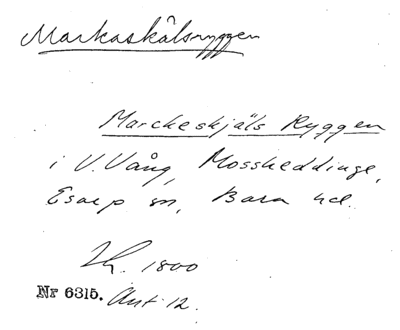 Markaskälsryggen
Marckeskjäls Ryggen
i V. Vång, Mossheddinge,
Esarp sn, Bara hd.
1800
Nr 6315. Akt 12.